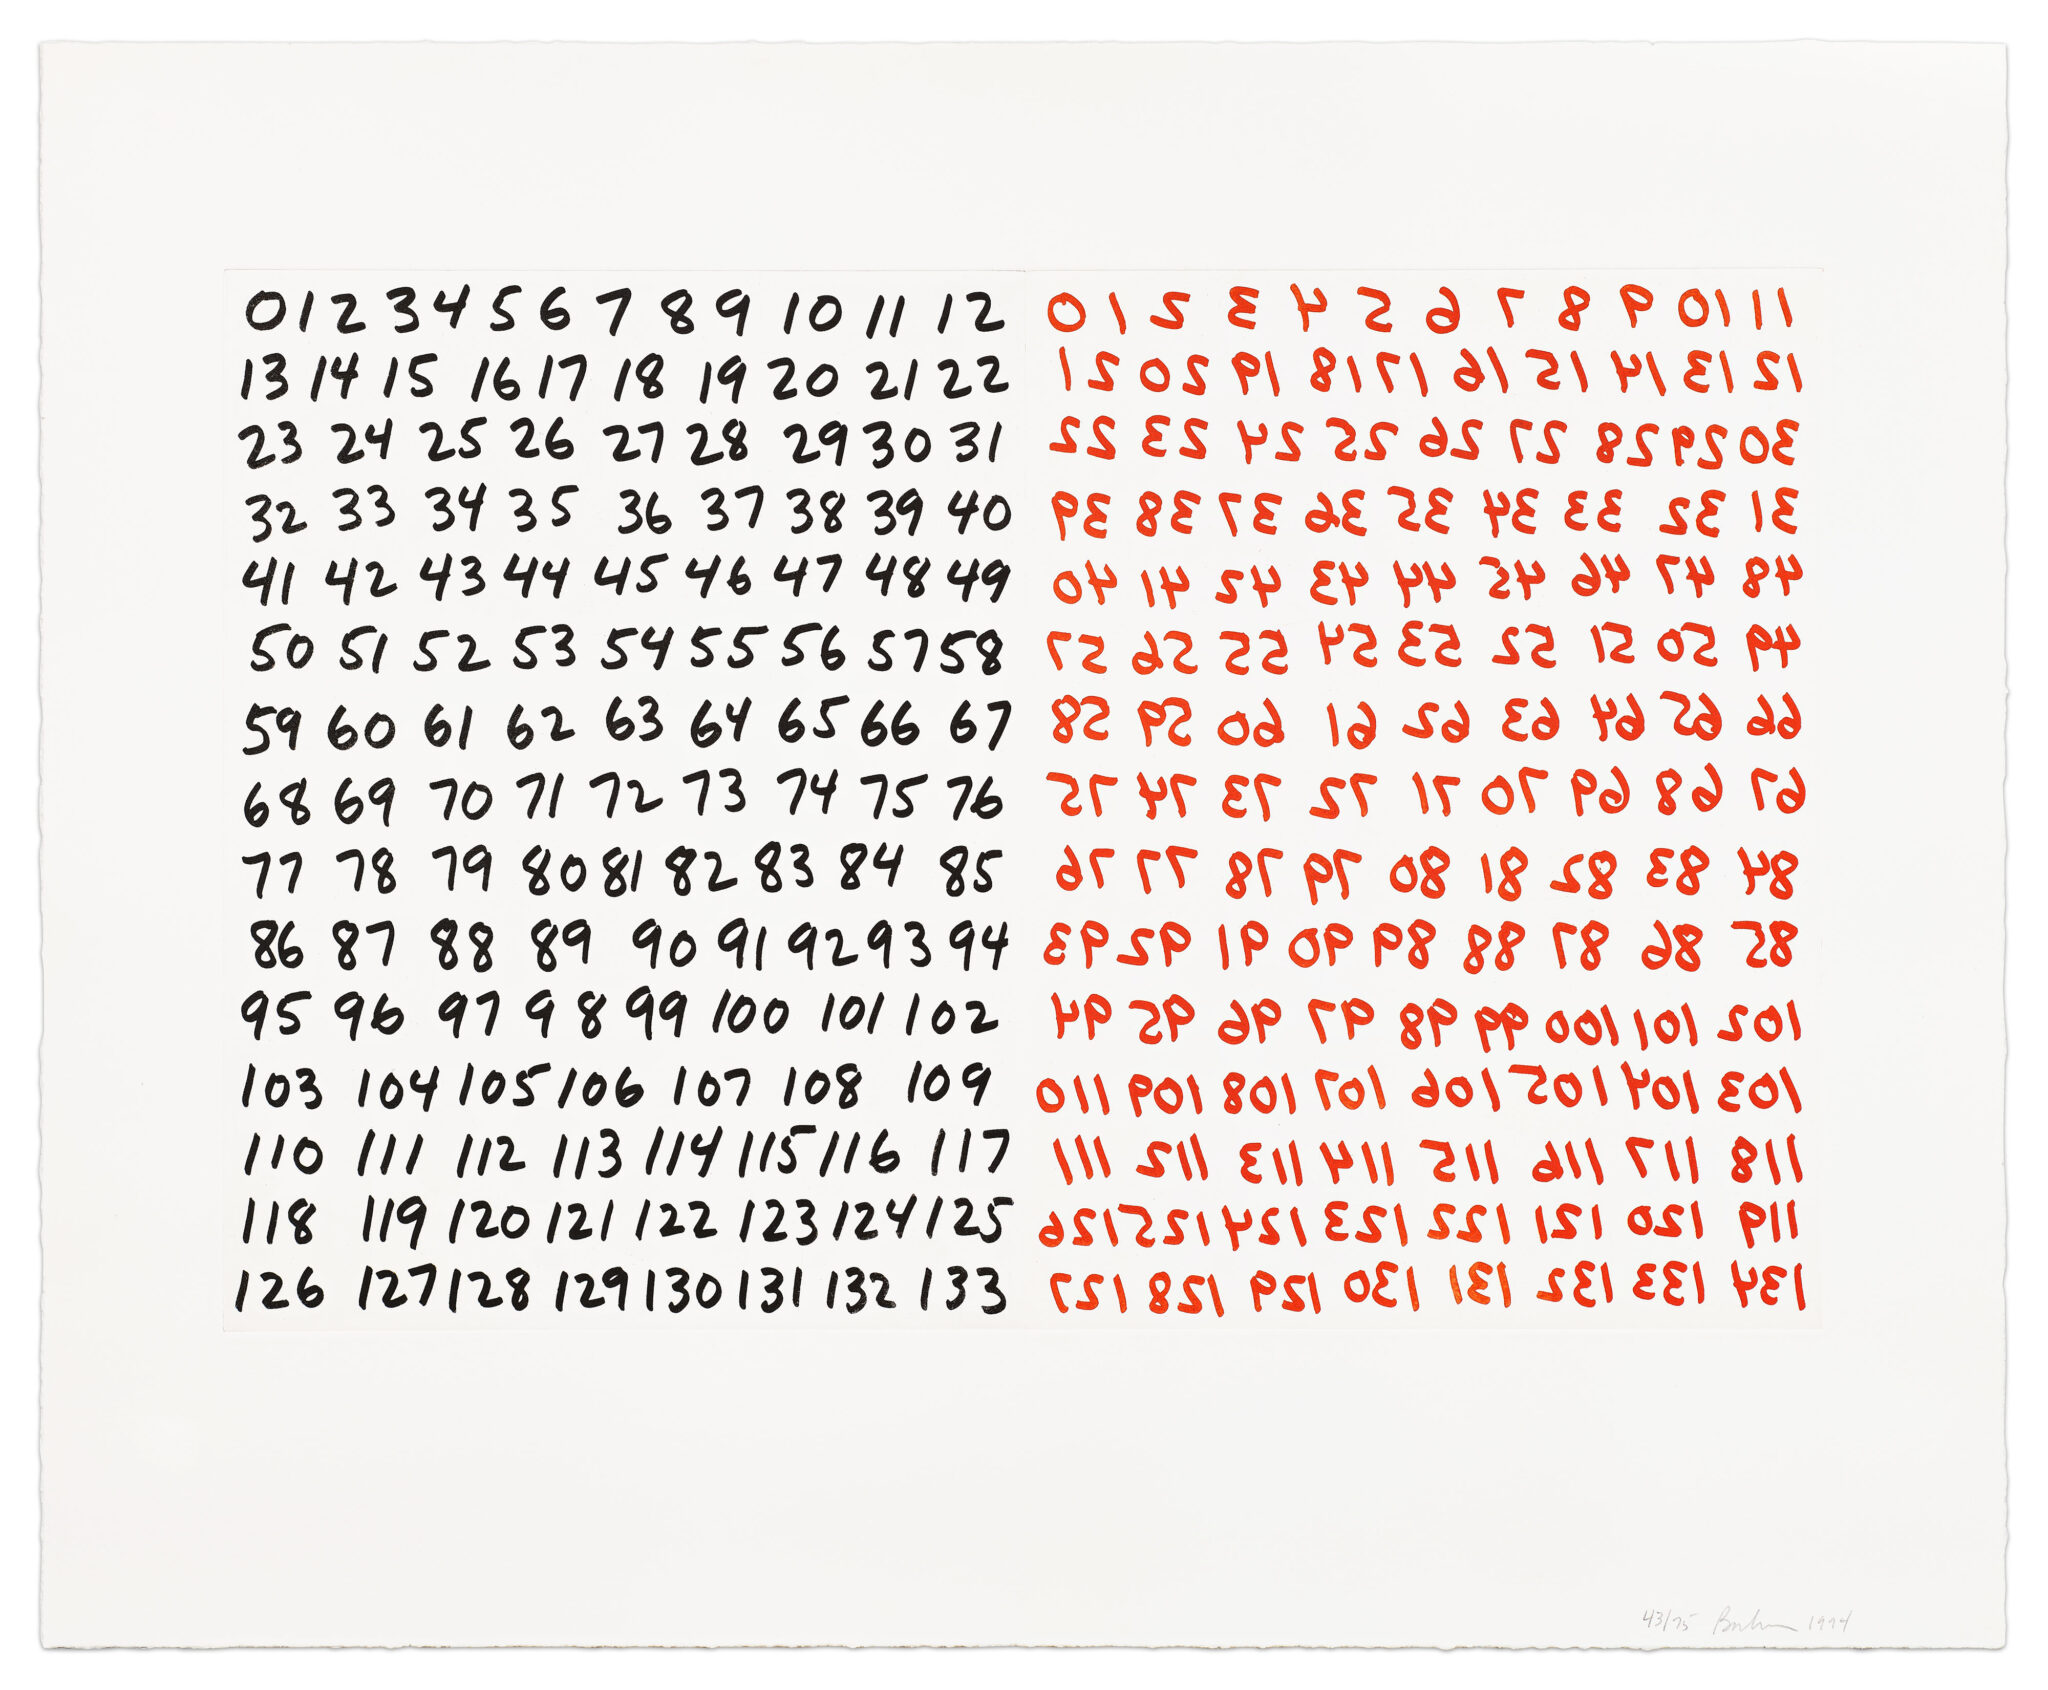 0 1 2 3 4 5 6 7 8 9 10 11 12
13 14 15 16 17 18 19 20 21 22
23 24 25 26 27 28 29 30 31
32 33 34 35 36 37 38 39 40
41 42 43 44 45 46 47 48 49
50 51 52 53 54 55 56 57 58
59 60 61 62 63 64 65 66 67
68 69 70 71 72 73 74 75 76
77 78 79 80 81 82 83 84 85
86 87 88 89 90 91 92 93 94
95 96 97 98 99 100 101 102
103 104 105 106 107 108 109
110 111 112 113 114 115 116 117
118 119 120 121 122 123 124 125
126 127 128 129 130 131 132 133
0 1 2 3 4 5 6 7 8 9 10 11
21 20 19 18 17 16 15 14 13 12
22 23 24 25 26 27 28 29 30
39 38 37 36 35 34 33 32 31
40 41 42 43 44 45 46 47 48
57 56 55 54 53 52 51 50 49
58 59 60 61 62 63 64 65 66
75 74 73 72 71 70 69 68 67
76 77 78 79 80 81 82 83 84
93 92 91 90 89 88 87 86 85
94 95 96 97 98 99 100 101 102
110 109 108 107 106 105 104 103
111 112 113 114 115 116 117 118
126 125 124 123 122 121 120 119
127 128 129 130 131 132 133 134
43/75 1994